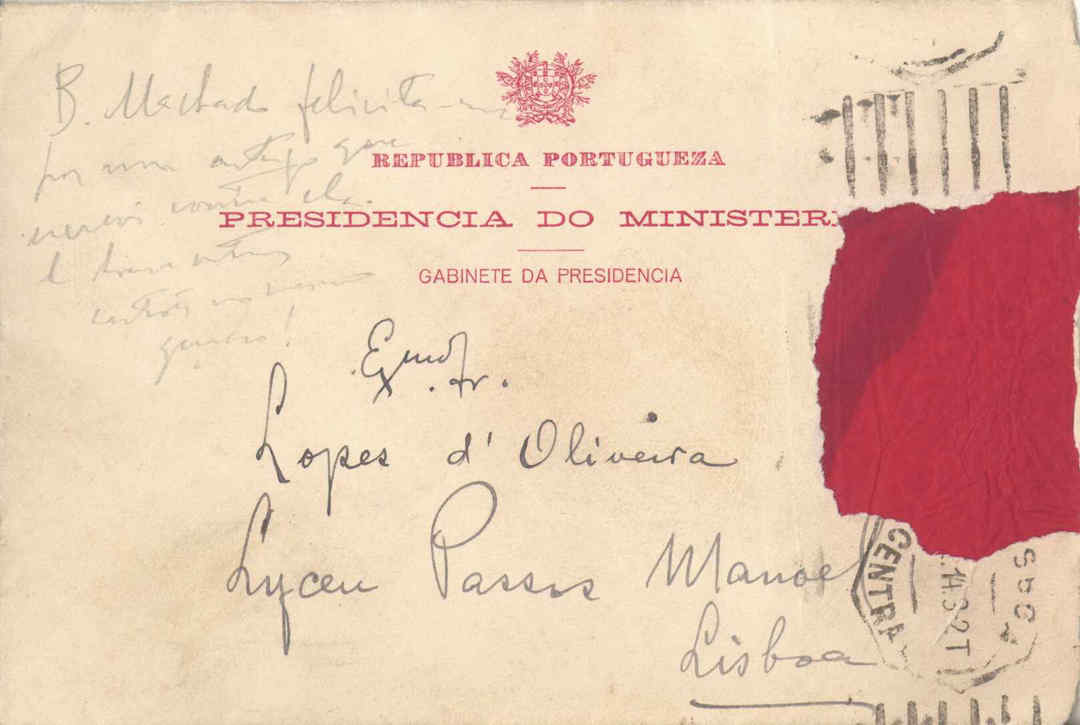 B. Machado felicita-me
por um artigo que
escrevi contra ele.
e
género!
REPUBLICA PORTUGUEZA
PRESIDENCIA DO MINISTER
GABINETE DA PRESIDENCIA
Exmo Sr.
Lopes d'Oliveira
Lyceu Passos Manoel
Lisboa
CENTRA
14.32T